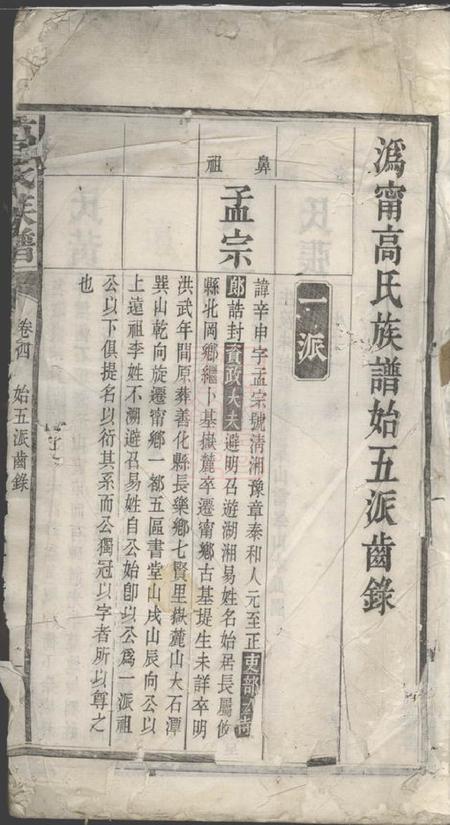 潙甯高氏族譜始五派齒錄
一派
鼻祖
孟宗
諱辛申字孟宗號清湘豫章泰和人元至正吏部
郎誥封資政大夫避明召遊湖湘易姓名始居長屬攸
縣北岡鄉繼卜基嶽麓卒遷甯鄉古基堤生未詳卒明
洪武年間原葬善化縣長樂鄉七賢里嶽麓山大石潭
巽山乾向旋遷甯鄉一都五區書堂山戌山辰向公以
上遠祖李姓不溯避召易姓自公始卽以公爲一派祖
公以下俱提名以衍其系而公獨冠以字者所以尊之
也
高氏族譜
卷四
始五派齒錄